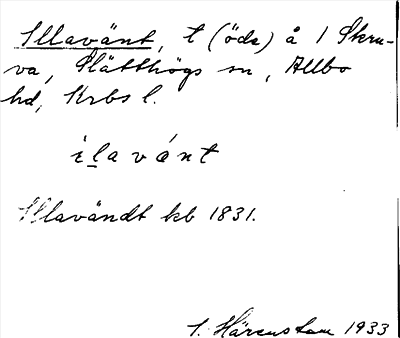 Illavänt, t (öde) å 1 Skru-
va, Slätthögs sn, Allbo
hd, Krbs l.
ilavánt
Illavändt kb 1831.
S. Härenstam 1933